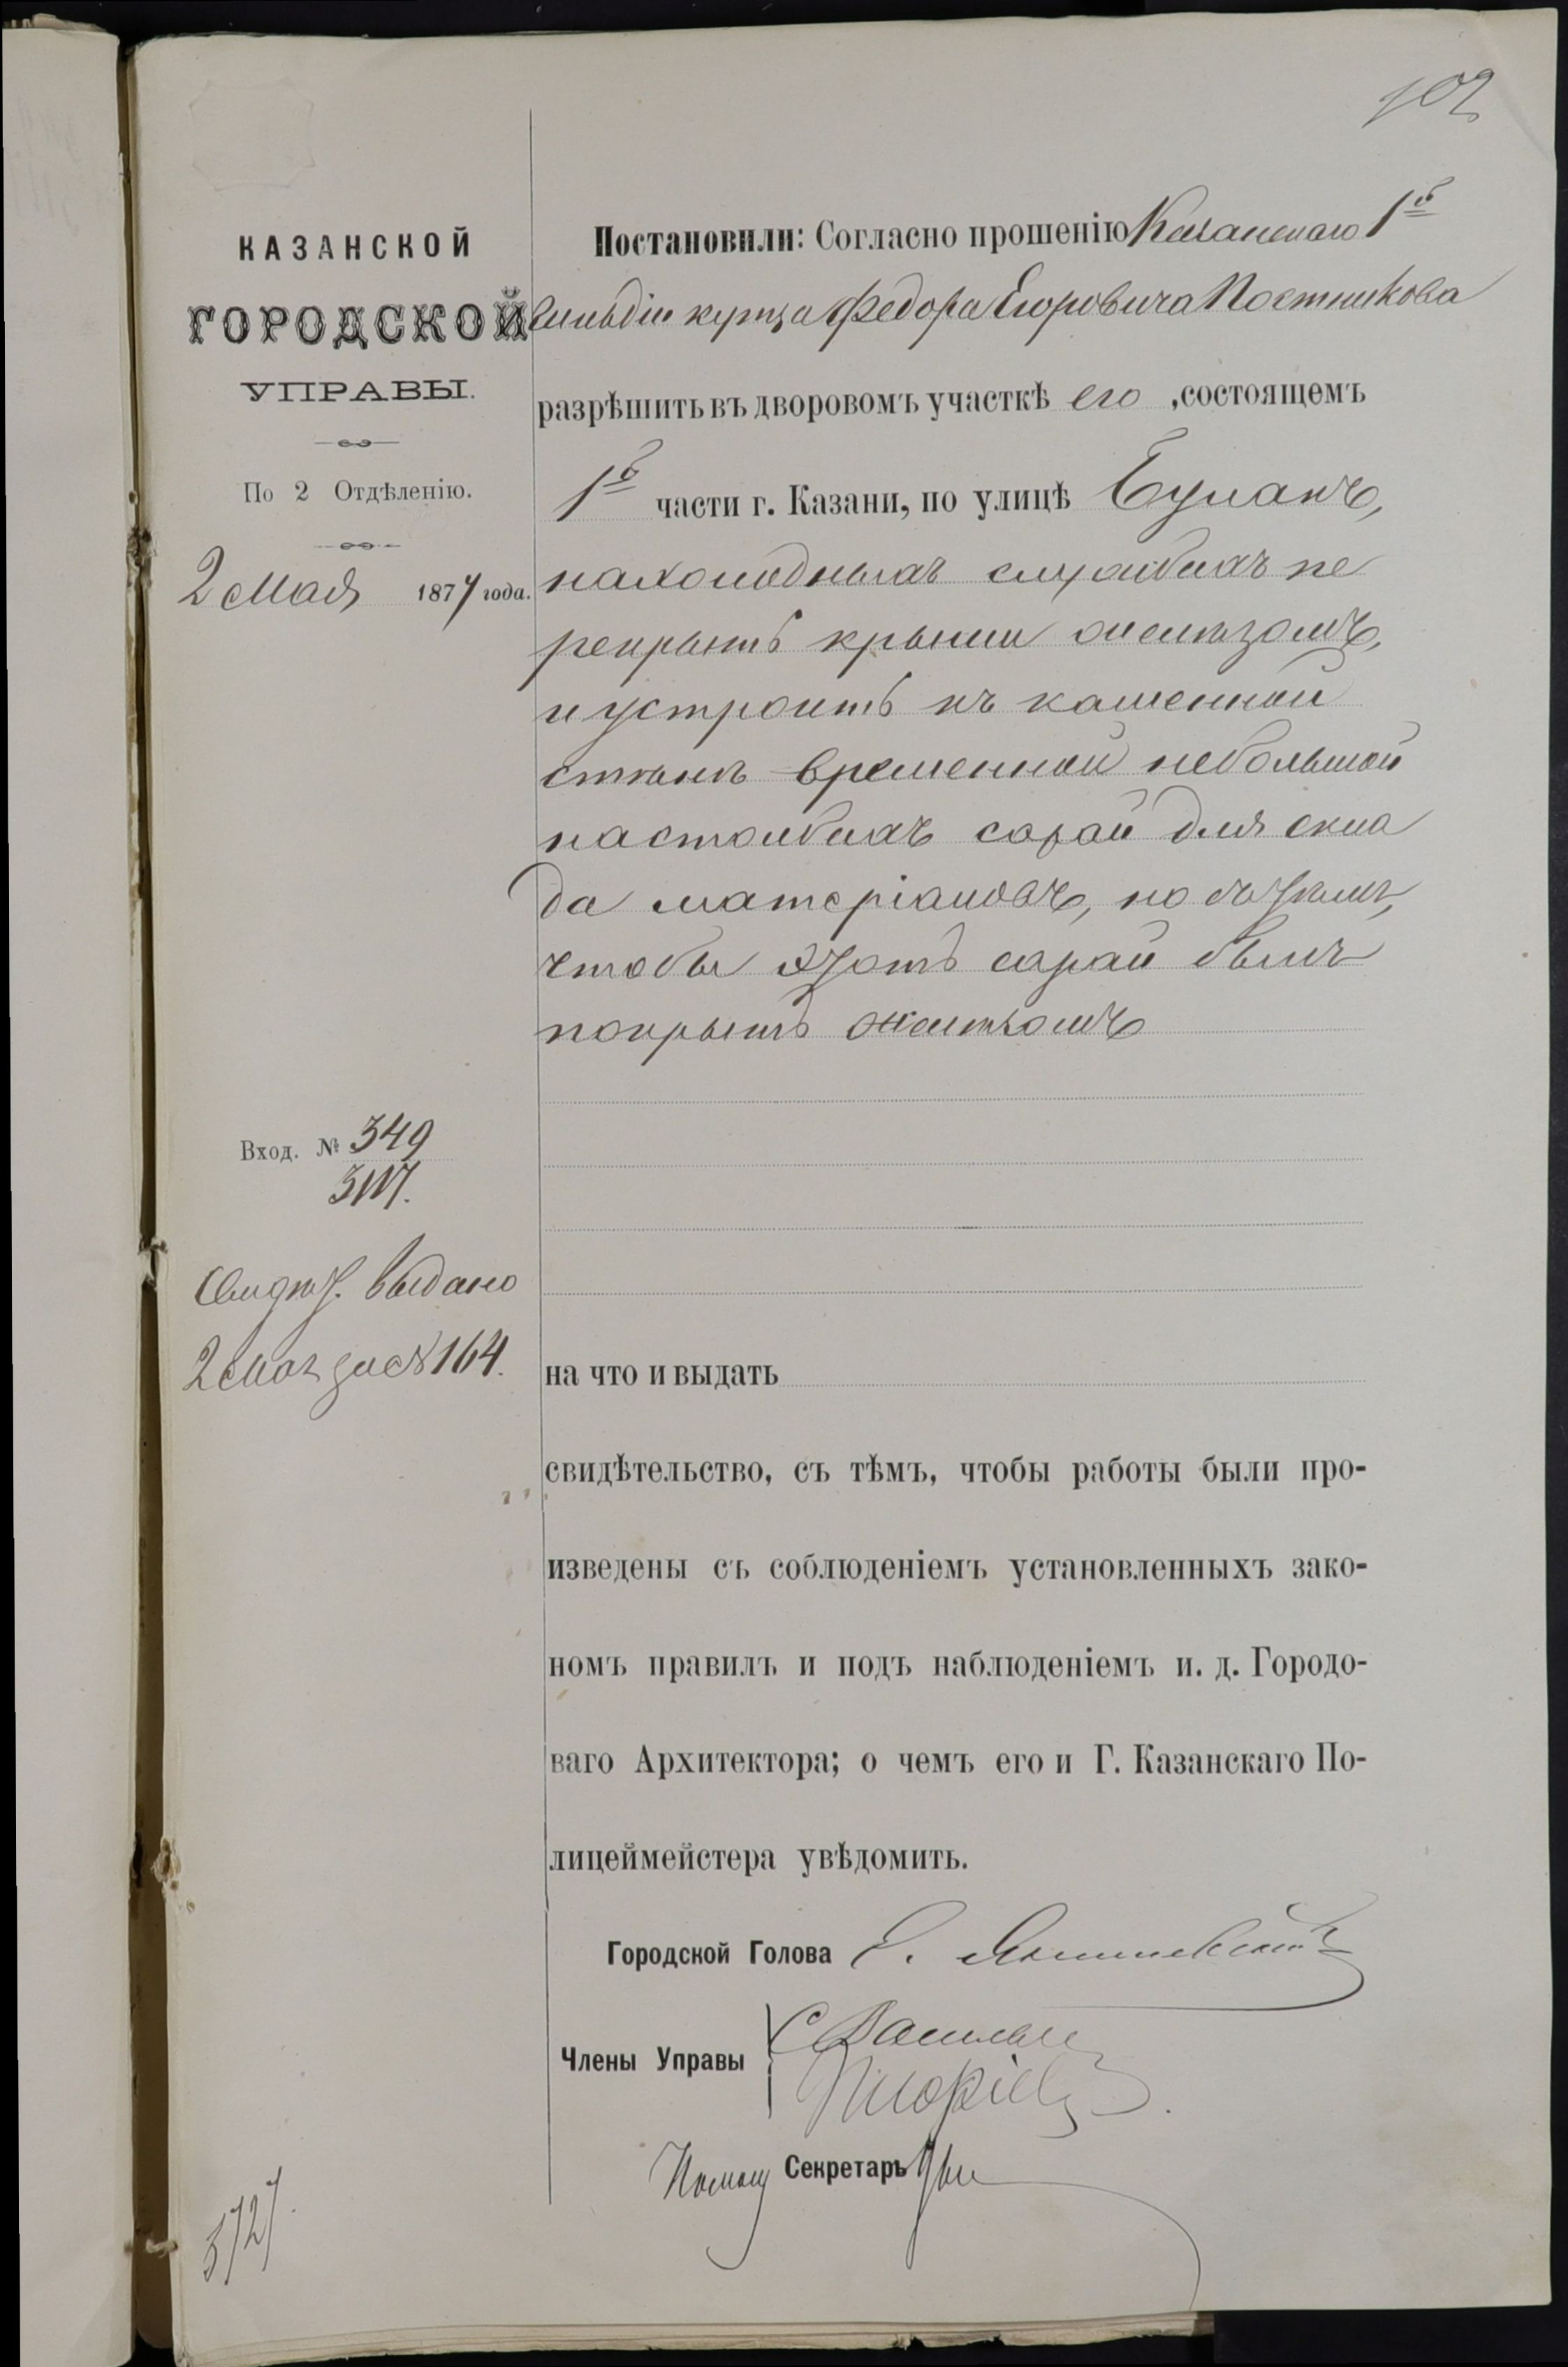 102
КАЗАНСКОЙ
ГОРОДСКОЙ
УПРАВЫ.
По 2 Отдѣленію.
2 Мая 1877 года.
Постановили: Согласно прошенію Казанскаго 1й
гильдіи купца Федора Егоровича Постникова
разрѣшить въ дворовомъ участкѣ его, состоящемъ
1й части г. Казани, по улицѣ Булакъ,
на холодныхъ службахъ пе
рекрыть крыши желѣзомъ,
и устроить къ каменной
стѣнѣ временной небольшой
на столбахъ сарай для скла
да матеріаловъ, но съ тѣмъ,
чтобы этотъ сарай былъ
покрытъ желѣзомъ
Вход. № 349
Свидѣт. выдано
2 Мая за № 164.
на что и выдать
свидѣтельство, съ тѣмъ, чтобы работы были про-
изведены съ соблюденіемъ установленныхъ зако-
номъ правилъ и подъ наблюденіемъ и. д. Городо-
ваго Архитектора; о чемъ его и Г. Казанскаго По-
лицеймейстера увѣдомить.
Городской Голова Э. Янишевскій
Члены Управы
Помощ Секретарь